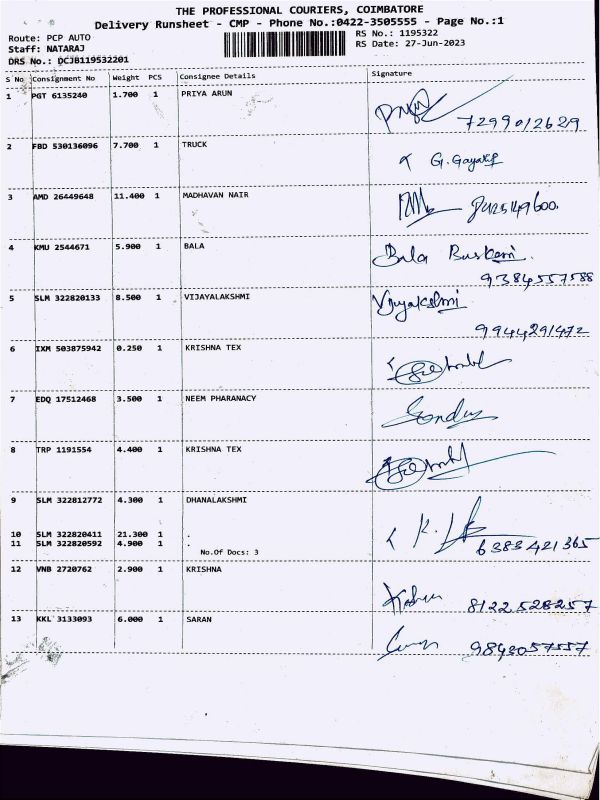 THE PROFESSIONAL COURIERS, COIMBATORE
Delivery Runsheet - CMP - Phone No.:0422-3505555 - Page No.:1
Route: PCP AUTO
RS No.: 1195322
Staff: NATARAJ
RS Date: 27-Jun-2023
DRS No.: DCJB119532201
S No Consignment No Weight PCS Consignee Details Signature
1 PGT 6135240 1.700 1 PRIYA ARUN
7299012629
2 FBD 530136096 7.700 1 TRUCK
3 AMD 26449648 11.400 1 MADHAVAN NAIR
4 KMU 2544671 5.900 1 BALA
Bala
9384557588
5 SLM 322820133 8.500 1 VIJAYALAKSHMI
9944291472
6 IXM 503875942 0.250 1 KRISHNA TEX
7 EDQ 17512468 3.500 1 NEEM PHARANACY
8 TRP 1191554 4.400 1 KRISHNA TEX
9 SLM 322812772 4.300 1 DHANALAKSHMI
10 SLM 322820411 21.300 1 .
11 SLM 322820592 4.900 1 .
6383421365
No.Of Docs: 3
12 VNB 2720762 2.900 1 KRISHNA
8122528257
13 KKL 3133093 6.000 1 SARAN
9843057557